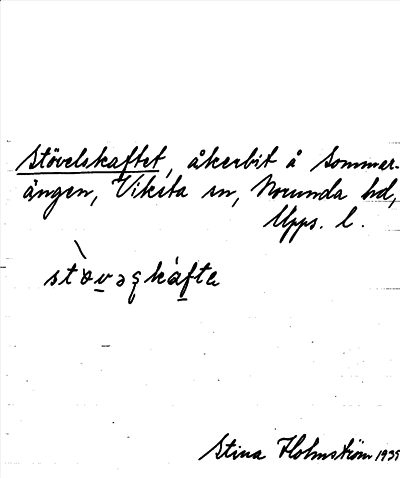 Stövelskaftet, åkerbit å Sommar-
ängen, Viksta sn, Norunda hd,
Upps. l.
stòvəʂkáfta
Stina Holmström 1935